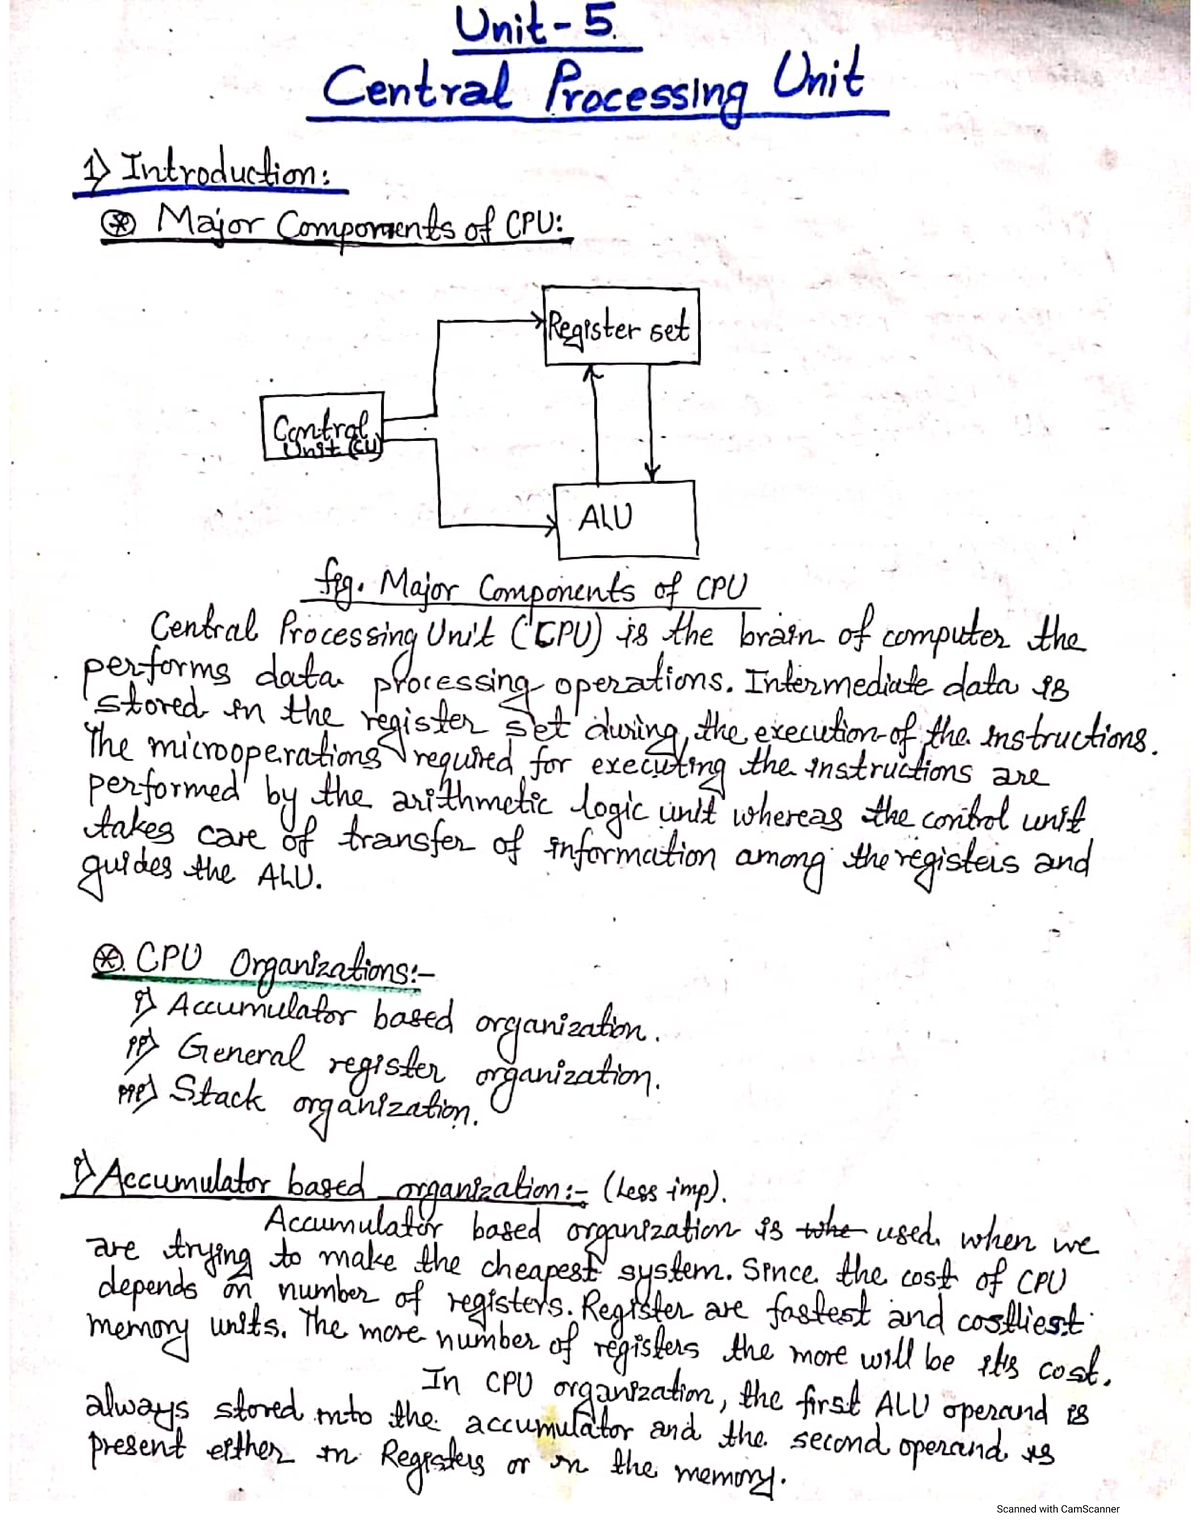 Unit-5.
Central Processing Unit
1) Introduction:
⊛ Major Components of CPU:
Register set
Control
Unit (CU)
ALU
fig. Major Components of CPU
Central Processing Unit (CPU) is the brain of computer the
performs data processing operations. Intermediate data is
stored in the register set during the execution of the instructions.
The microoperations required for executing the instructions are
performed by the arithmetic logic unit whereas the control unit
takes care of transfer of information among the registers and
guides the ALU.
⊛. CPU Organizations:-
i) Accumulator based organization.
ii) General register organization.
iii) Stack organization.
i) Accumulator based organization:- (Less imp).
Accumulator based organization is whe used when we
are trying to make the cheapest system. Since the cost of CPU
depends on number of registers. Register are fastest and costliest
memory units. The more number of registers the more will be it's cost.
In CPU organization, the first ALU operand is
always stored into the accumulator and the second operand is
present either in Registers or in the memory.
Scanned with CamScanner